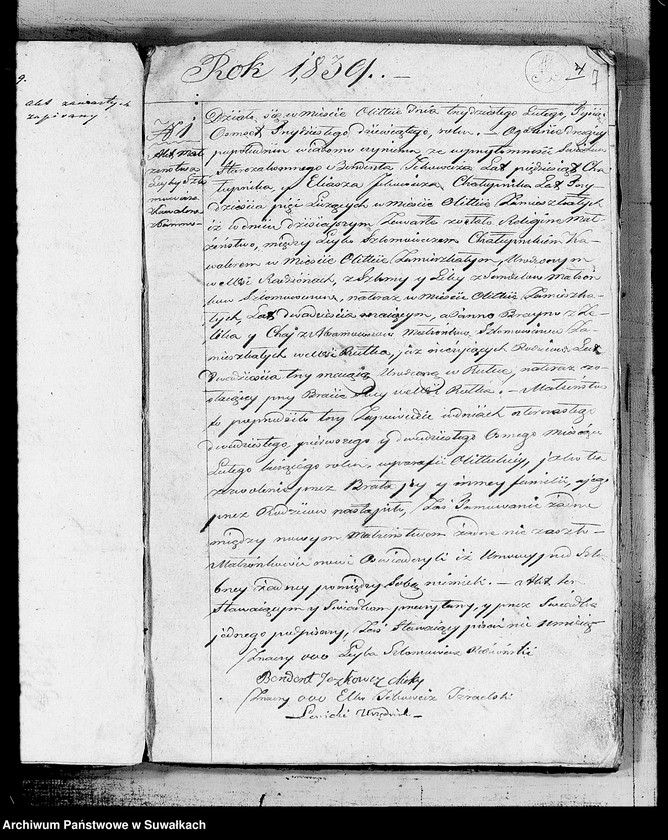 9.
Akt zawartych
zapisany
Rok 1,839. . —
7
№ 1
Akt Mał
żeństwa
Leyby Szlo
mowicza
Kawalera
Działo się w mieście Olittie dnia trzydziestego Lutego, Tysiąc
Osmset Trzydziestego, dziewiątego, roku. — O godzinie drugiey
popołudniu wiadomo czyniemy ze w przytomności Swiadków
Starozakonnego Bendenta Lat pięćdziesiąt Cha
łupnika, y Eliasza Chałupnika Lat Trzy
dziescia pięć Liczących w mieście Olittie Zamieszkałych
iż w dniu dzisiajszym Zawarte zostało Religijne Mał
żeństwo, między Leybą Szlomowiczem Chałupnikiem Ka-
walerem w mieście Olittie Zamieszkałym, Urodzonym
w Wsi z Szlomy y Liby z Małżon
ków Szlomowiczów, nateraz w mieście Olittie Zamieszka-
łych, Lat dwadzieścia maiącym, a Panną Brayną z Ze-
lika y Chai z Małżonków Szlomowiczów Za-
mieszkałych we Wsi Rutka, już nieżyjących Rodziców Lat
Dwadzieścia trzy maiącą Urodzoną w Rutce, nateraz zo-
staiącey przy Bracie we Wsi Rutka. — Małżeństwo
to poprzedziły trzy Zapowiedzie w dniach czternastego
dwudziestego, pierwszego y dwudziestego Osmego Miesiąca
Lutego bieżącego roku, w parafii Olittskiey, jako też
zezwolenie przez Brata jey y inney familii, a jego
przez Rodziców nastąpiło, Zaś Tamowanie żadne
między nowym Małżeństwem żadne nie zaszło —
Małżonkowie nowi Oświadczyli iż Umowy przed Szlu-
bney żadney pomiędzy Sobą niemieli. — a Akt ten
Stawaiącym y Swiadkom przeczytany, y przez Swiadka
jednego podpisany, Zaś Stawaiący pisać nie umieią
Znaczy ooo Leyba Szlomowicz
Bendent
Znaczy ooo Elko
Urzędnik —
Archiwum Państwowe w Suwałkach